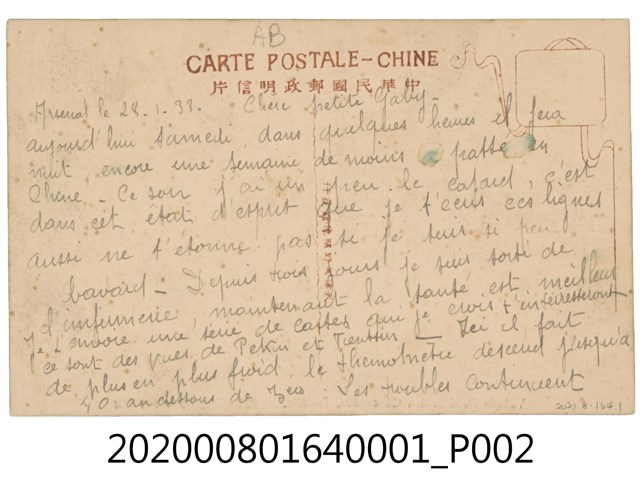 AB
CARTE POSTALE-CHINE
片信明政郵國民華中
Arsenal le 28.1.33. Chère petite Gaby -
aujourd'hui samedi, dans quelques heures il fera
nuit, encore une semaine de moins a passer en
Chine - Ce soir j'ai un peu le cafard, c'est
dans cet état d'esprit que je t'écris ces lignes
aussi ne t'étonne pas si je suis si peu
bavard - Depuis trois jours je suis sorti de
l'infirmerie, maintenant la santé est meilleur
Je t'envoie une série de cartes que je crois t'intéresseront
ce sont des vues de Pekin et Tientsin - Ici il fait
de plus en plus froid le thermomètre descend jusqu'à
au dessous de zero. Les troubles continuent
2020.8.164.1
202000801640001_P002